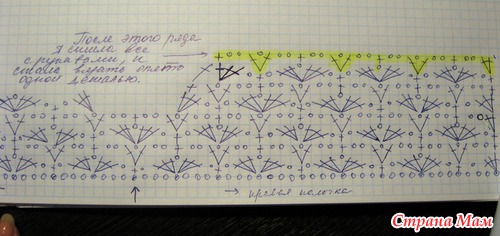 После этого ряда
я сшила все
с рукавами, и
стала вязать опять
одной деталью.
→ правая полочка
Страна Мам